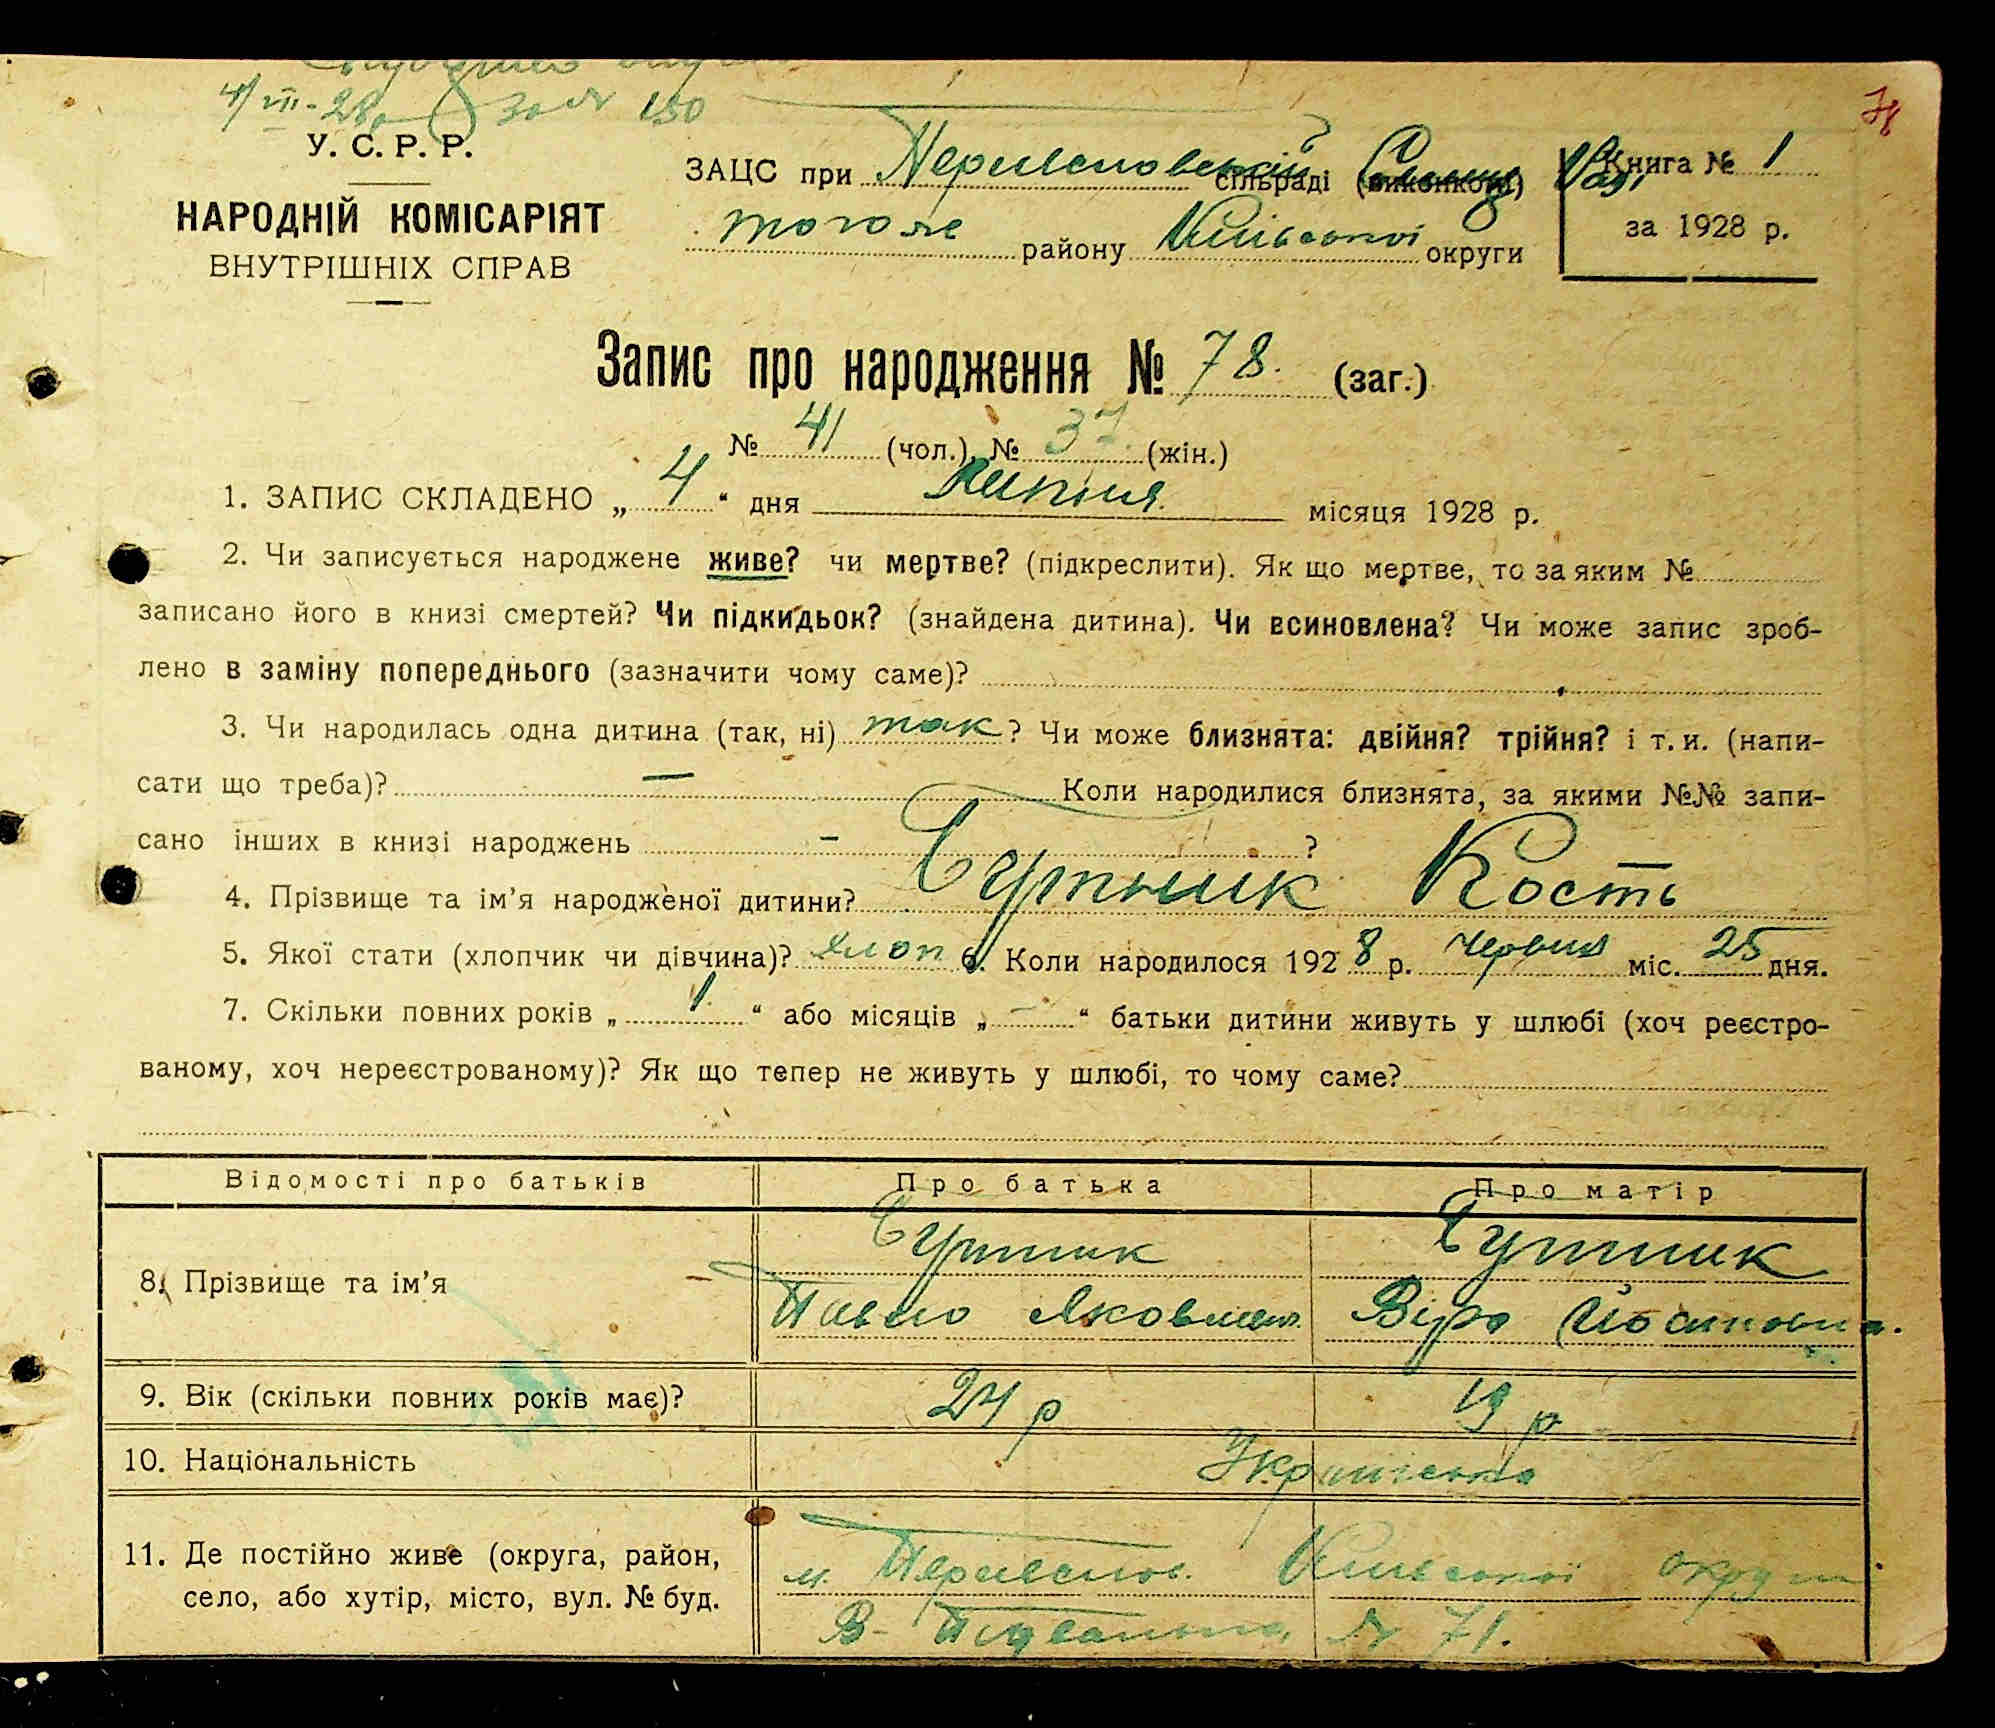 4/VII-28 р. за № 150
78
У. С. Р. Р.
НАРОДНІЙ КОМІСАРІЯТ
ВНУТРІШНІХ СПРАВ
ЗАЦС при сільраді (виконкомі)
того же району Київської округи
Книга № 1
за 1928 р.
Запис про народження № 78. (заг.)
№ 41 (чол.), № 37 (жін.)
1. ЗАПИС СКЛАДЕНО „ 4 “ дня Липня місяця 1928 р.
2. Чи записується народжене живе? чи мертве? (підкреслити). Як що мертве, то за яким №
записано його в книзі смертей? Чи підкидьок? (знайдена дитина). Чи всиновлена? Чи може запис зроб-
лено в заміну попереднього (зазначити чому саме)?
3. Чи народилась одна дитина (так, ні) так? Чи може близнята: двійня? трійня? і т. и. (напи-
сати що треба)? — Коли народилися близнята, за якими №№ запи-
сано інших в книзі народжень – ?
4. Прізвище та ім’я народженої дитини? Бутник Кость
5. Якої стати (хлопчик чи дівчина)? хлоп 6. Коли народилося 1928 р. Червня міс. 25 дня.
7. Скільки повних років „ 1 “ або місяців „ – “ батьки дитини живуть у шлюбі (хоч реєстро-
ваному, хоч нереєстрованому)? Як що тепер не живуть у шлюбі, то чому саме?
Відомості про батьків Про батька Про матір
8. Прізвище та ім’я
Бутник Бутник
Павло Яковлев. Віра
9. Вік (скільки повних років має)? 24 р 19 р
10. Національність Українська
11. Де постійно живе (округа, район,
село, або хутір, місто, вул. № буд.
м. Київської округи
В- Підвальна, № 71.